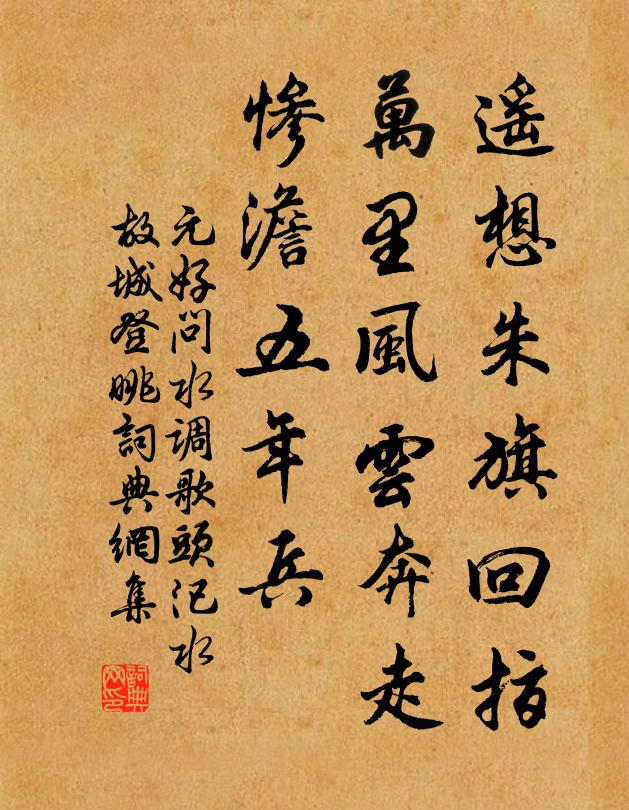 遥想朱旗回指
萬里風雲奔走
慘澹五年兵
元好問水调歌頭汜水
故城登眺詞典網集
詞典网印